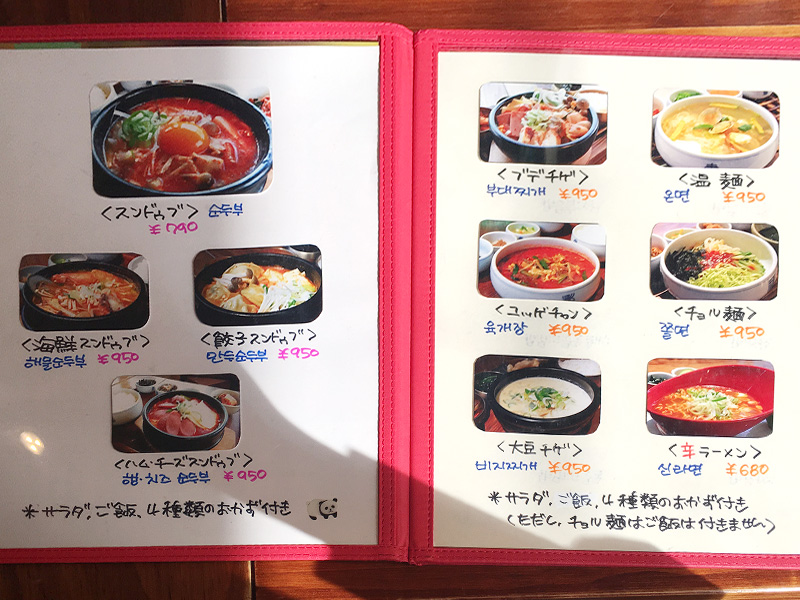 〈スンドゥブ〉 순두부
¥790
〈海鮮スンドゥブ〉
해물순두부 ¥950
〈餃子スンドゥブ〉
만두순두부 ¥950
〈ハム・チーズスンドゥブ〉
햄・치즈 순두부 ¥950
*サラダ、ご飯、4種類のおかず付き
〈プデチゲ〉
부대찌개 ¥950
〈温麺〉
온면 ¥950
〈ユッゲチャン〉
육개장 ¥950
〈チョル麺〉
쫄면 ¥950
〈大豆チゲ〉
비지찌개 ¥950
〈辛ラーメン〉
신라면 ¥680
*サラダ、ご飯、4種類のおかず付き
(ただし、チョル麺はご飯は付きません)